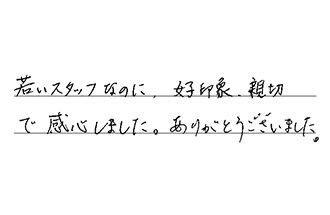 若いスタッフなのに、好印象、親切
で感心しました。ありがとうございました。